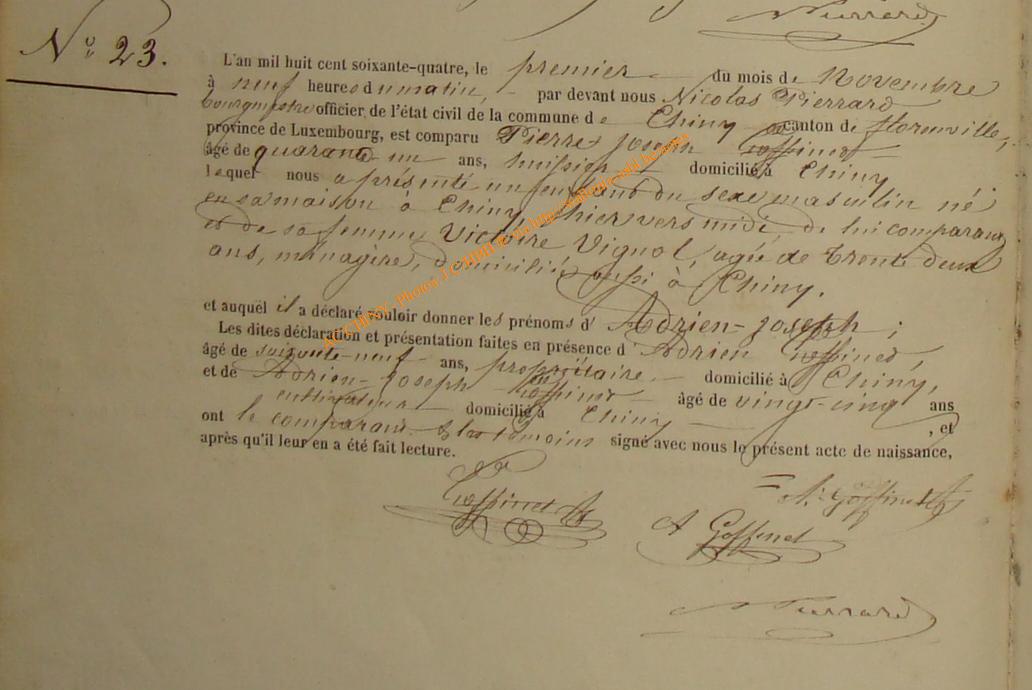 N° 23.
L'an mil huit cent soixante-quatre, le premier du mois de Novembre
à neuf heures du matin, par devant nous Nicolas Pierrard
bourgmestre officier de l'état civil de la commune de Chiny canton de florenville,
province de Luxembourg, est comparu Pierre Joseph Goffinet
âgé de quarante-un ans, huissier domicilié à Chiny
lequel nous a présenté un enfant du sexe masculin né
en sa maison à Chiny, hier vers midi, de lui comparant
et de sa femme Victoire Vignol, agée de trente deux
ans, ménagère, domiciliée aussi à Chiny.
et auquel il a déclaré vouloir donner les prénoms d'Adrien-Joseph;
Les dites déclaration et présentation faites en présence d'Adrien Goffinet,
âgé de soixante-neuf ans, propriétaire domicilié à Chiny,
et de Adrien-Joseph Goffinet âgé de vingt-cinq ans
cultivateur domicilié à Chiny , et
ont le comparant & les témoins signé avec nous le présent acte de naissance,
après qu'il leur en a été fait lecture.
Goffinet
A. Goffinet
A Goffinet
N Pierrard